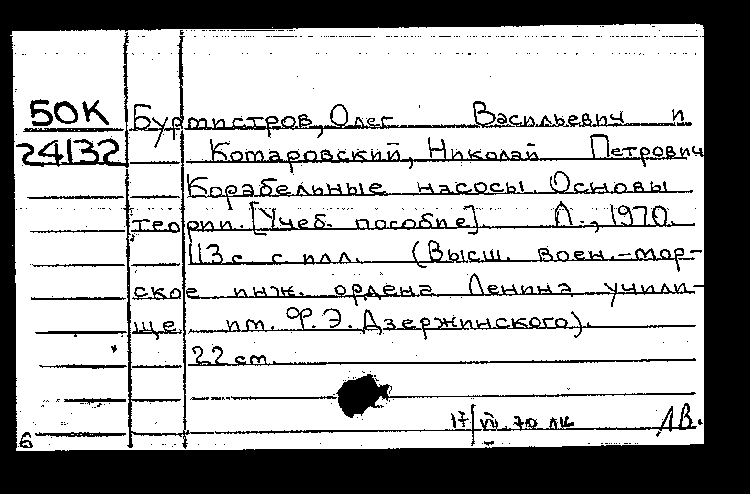 50К
24132
Бурмистров, Олег Васильевич и
Комаровский, Николай Петрович
Корабельные насосы. Основы
теории. [Учеб. пособие]. Л., 1970.
113 с. с илл. (Высш. воен.-мор-
ское инж. ордена Ленина учили-
ще им. Ф.Э. Дзержинского).
22 см.
17/VII 70
6